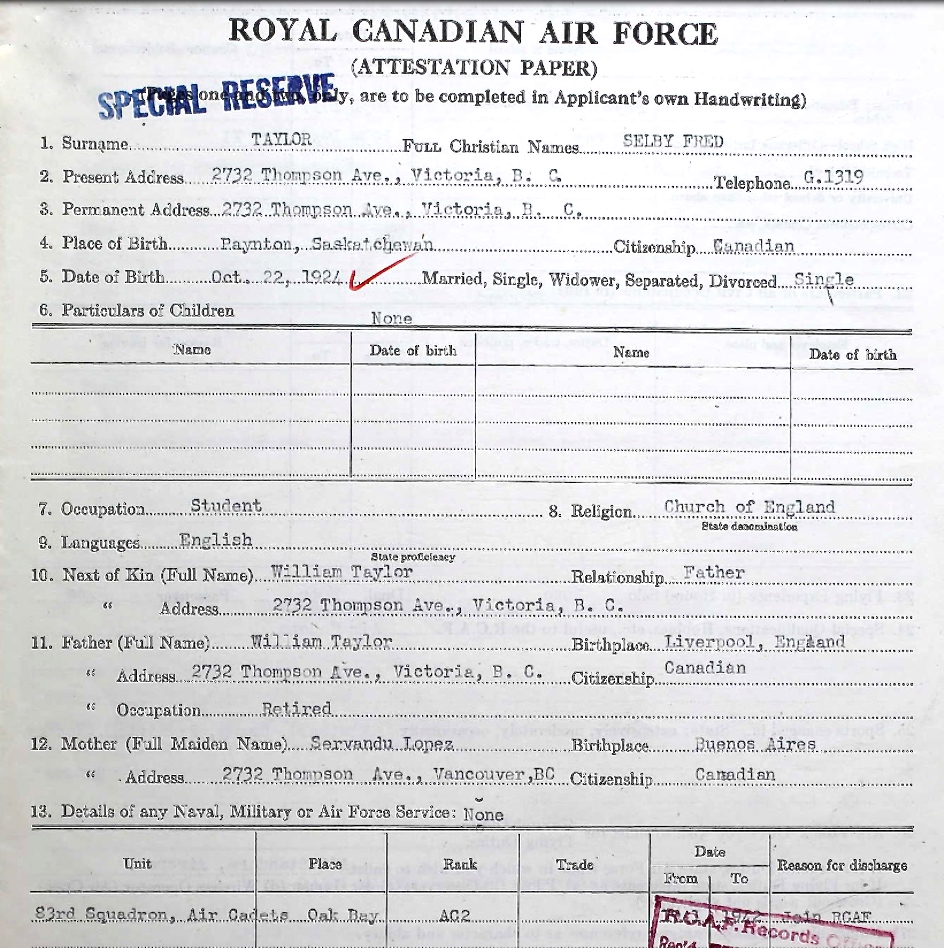 ROYAL CANADIAN AIR FORCE
(ATTESTATION PAPER)
SPECIAL RESERVE
only, are to be completed in Applicant's own Handwriting)
1. Surname TAYLOR FULL Christian Names SELBY FRED
2. Present Address 2732 Thompson Ave., Victoria, B. C. Telephone G.1319
3. Permanent Address 2732 Thompson Ave., Victoria, B. C.
4. Place of Birth Paynton, Saskatchewan Citizenship Canadian
5. Date of Birth Oct. 22, 1924 Married, Single, Widower, Separated, Divorced Single
6. Particulars of Children None
Name Date of birth Name Date of birth
7. Occupation Student 8. Religion Church of England
State denomination
9. Languages English
State proficiency
10. Next of Kin (Full Name) William Taylor Relationship Father
" Address 2732 Thompson Ave., Victoria, B. C.
11. Father (Full Name) William Taylor Birthplace Liverpool, England
" Address 2732 Thompson Ave., Victoria, B. C. Citizenship Canadian
" Occupation Retired
12. Mother (Full Maiden Name) Servandu Lopez Birthplace Buenos Aires
" Address 2732 Thompson Ave., Vancouver,BC Citizenship Canadian
13. Details of any Naval, Military or Air Force Service: None
Unit Place Rank Trade Date Reason for discharge
From To
83rd Squadron, Air Cadets Oak Bay AC2 1942 Join RCAF
R.C.A.F. Records Office